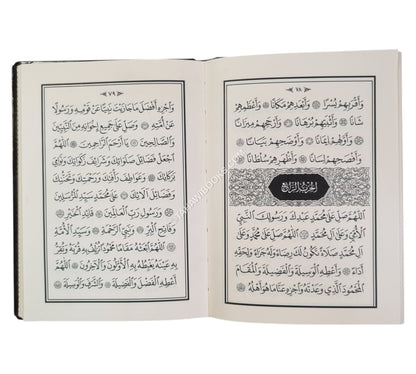 ٦٨
وَأَقْرَبِهِمْ يُسْرًا ۞ وَأَبْعَدِهِمْ مَكَانًا ۞ وَأَعْظَمِهِمْ
شَانًا ۞ وَأَثْبَتِهِمْ بُرْهَانًا ۞ وَأَرْجَحِهِمْ مِيزَانًا
۞ وَأَوَّلِهِمْ إِيمَانًا ۞ وَأَوْضَحِهِمْ بَيَانًا
۞ وَأَفْصَحِهِمْ لِسَانًا ۞ وَأَظْهَرِهِمْ سُلْطَانًا
الحزب الرابع
اَللّٰهُمَّ صَلِّ عَلَى مُحَمَّدٍ عَبْدِكَ وَرَسُولِكَ النَّبِيِّ
الْأُمِّيِّ وَعَلَى آلِ مُحَمَّدٍ ۞ اَللّٰهُمَّ صَلِّ عَلَى مُحَمَّدٍ وَعَلَى
آلِ مُحَمَّدٍ صَلَاةً تَكُونُ لَكَ رِضَاءً وَلَهُ جَزَاءً وَلِحَقِّهِ
أَدَاءً ۞ وَأَعْطِهِ الْوَسِيلَةَ وَالْفَضِيلَةَ وَالْمَقَامَ
الْمَحْمُودَ الَّذِي وَعَدْتَهُ وَاجْزِهِ عَنَّا مَا هُوَ أَهْلُهُ ۞
٧٩
وَاجْزِهِ أَفْضَلَ مَا جَازَيْتَ نَبِيًّا عَنْ قَوْمِهِ وَرَسُولًا
عَنْ أُمَّتِهِ ۞ وَصَلِّ عَلَى جَمِيعِ إِخْوَانِهِ مِنَ النَّبِيِّينَ
وَالصَّالِحِينَ ۞ اَللّٰهُمَّ
اجْعَلْ فَضَائِلَ صَلَوَاتِكَ وَشَرَائِفَ زَكَوَاتِكَ وَنَوَامِيَ
بَرَكَاتِكَ وَعَوَاطِفَ رَأْفَتِكَ وَرَحْمَتِكَ وَتَحِيَّتِكَ
وَفَضَائِلَ آلَائِكَ ۞ عَلَى مُحَمَّدٍ سَيِّدِ الْمُرْسَلِينَ
۞ وَرَسُولِ رَبِّ الْعَالَمِينَ ۞ قَائِدِ الْخَيْرِ
۞ وَفَاتِحِ الْبِرِّ ۞ وَنَبِيِّ الرَّحْمَةِ ۞ وَسَيِّدِ الْأُمَّةِ
۞ اَللّٰهُمَّ ابْعَثْهُ مَقَامًا مَحْمُودًا تُزْلِفُ بِهِ قُرْبَهُ وَتُقِرُّ
بِهِ عَيْنَهُ يَغْبِطُهُ بِهِ الْأَوَّلُونَ وَالْآخِرُونَ ۞ اَللّٰهُمَّ
أَعْطِهِ الْفَضْلَ وَالْفَضِيلَةَ ۞ وَالشَّرَفَ وَالْوَسِيلَةَ ۞